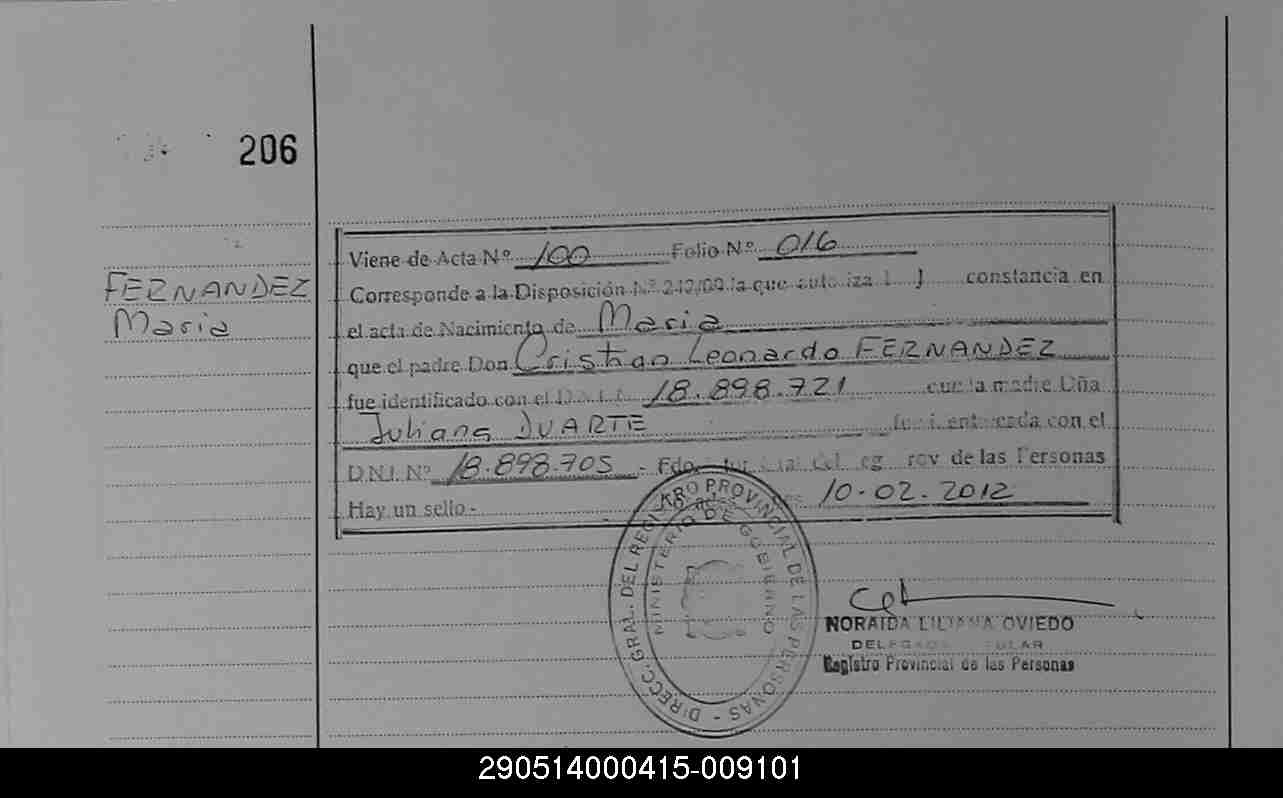 206
FERNANDEZ
Maria
Viene de Acta Nº 100 Folio Nº 016
Corresponde a la Disposición Nº 242/09 la que autoriza constancia en
el acta de Nacimiento de Maria
que el padre Don Cristian Leonardo FERNANDEZ
fue identificado con el D.N.I. 18.898.721 que la madre Dña
Juliana DUARTE con el
D.N.I. Nº 18.898.705 - Fdo. de las Personas
Hay un sello - 10-02-2012
DIRECC. GRAL. DEL REGISTRO PROVINCIAL DE LAS PERSONAS -
MINISTERIO DE GOBIERNO
NORAIDA LILIANA OVIEDO
Registro Provincial de las Personas
290514000415-009101